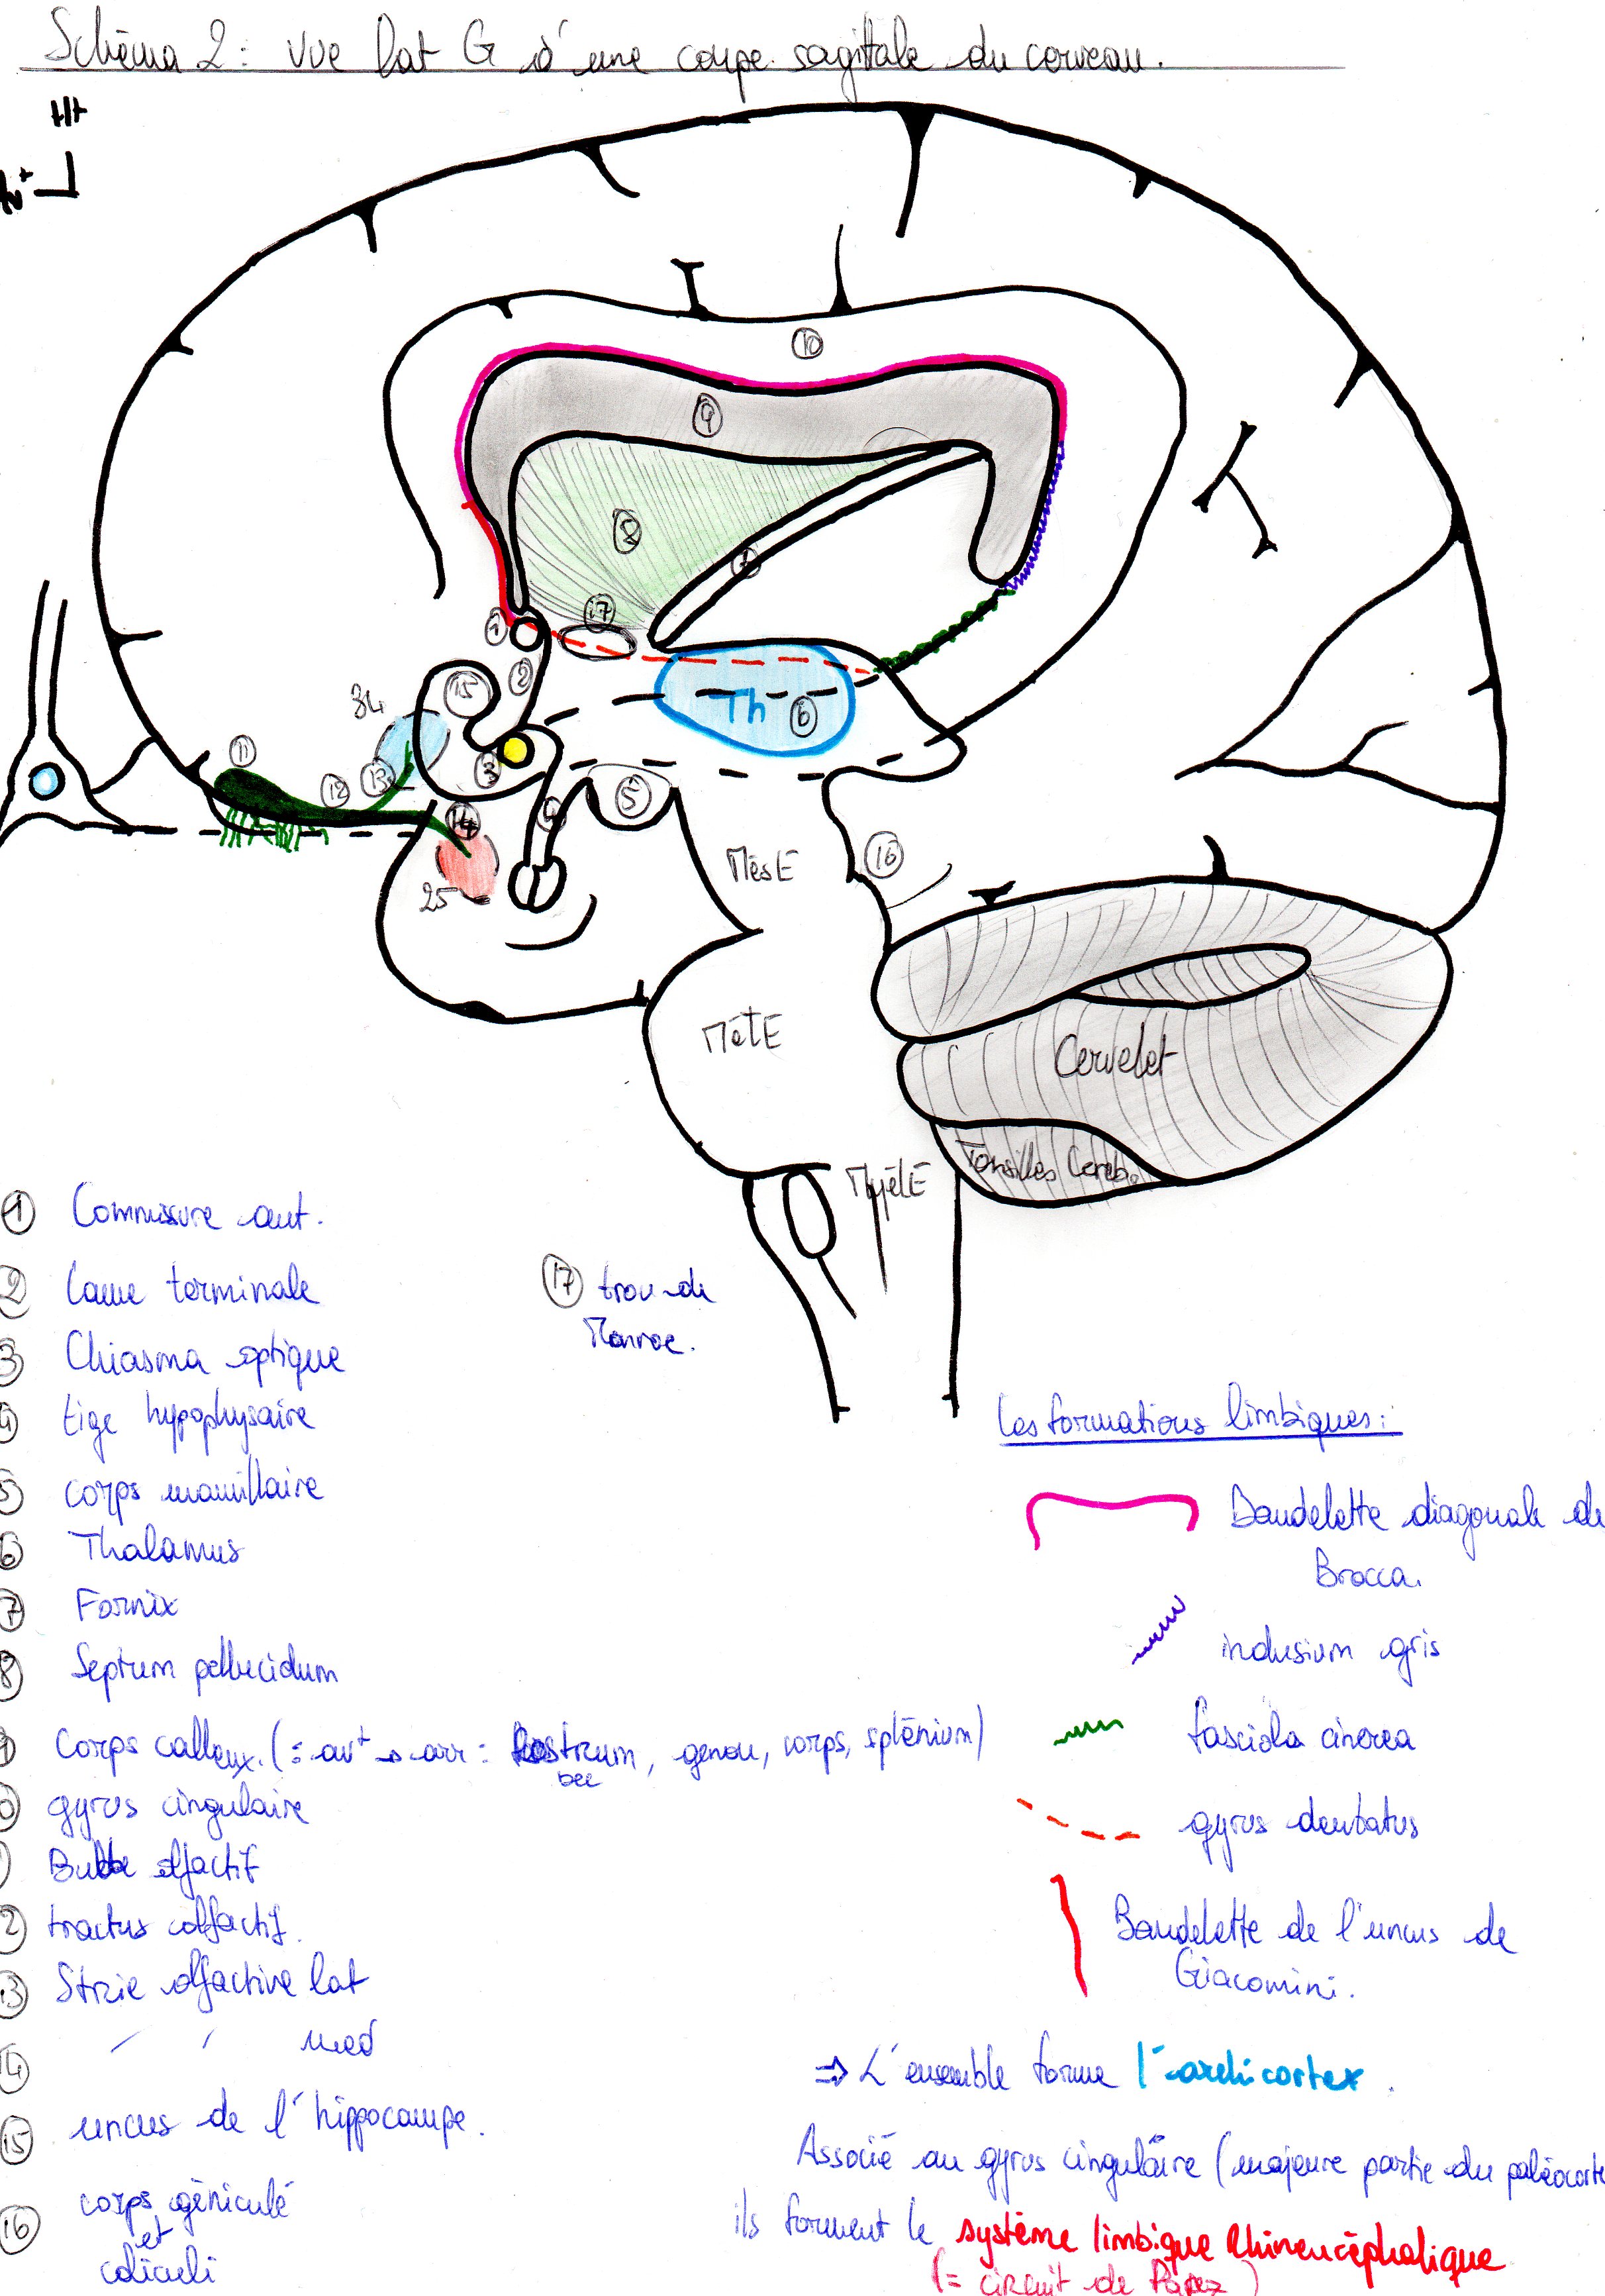 Schéma 2: vue lat G d'une coupe sagittale du cerveau.
Ht
Av^t
10
9
8
7
17
1
2
15
34
Th
6
11
12
13
3
14
4
5
25
MésE
16
MétE
Cervelet
Tonsilles Cereb.
MyélE
1 Commissure ant.
2 Lame terminale
3 Chiasma optique
4 tige hypophysaire
5 corps mamillaire
6 Thalamus
7 Fornix
8 Septum pellucidum
9 Corps calleux. (= av^t → arr : Rostrum, genou, corps, splénium)
bec
10 gyrus cingulaire
11 Bulbe olfactif
12 tractus olfactif.
13 Strie olfactive lat
14 " " med
15 uncus de l'hippocampe.
16 corps géniculé
et
coliculi
17 trou de
Monroe.
Les formations limbiques:
Bandelette diagonale de
Brocca.
indusium gris
fasciola cinerea
gyrus dentatus
Bandelette de l'uncus de
Giacomini.
⇒ L'ensemble forme l'archicortex.
Associé au gyrus cingulaire (majeure partie du paléocorte
ils forment le système limbique Rhinencéphalique
(= circuit de Papez)